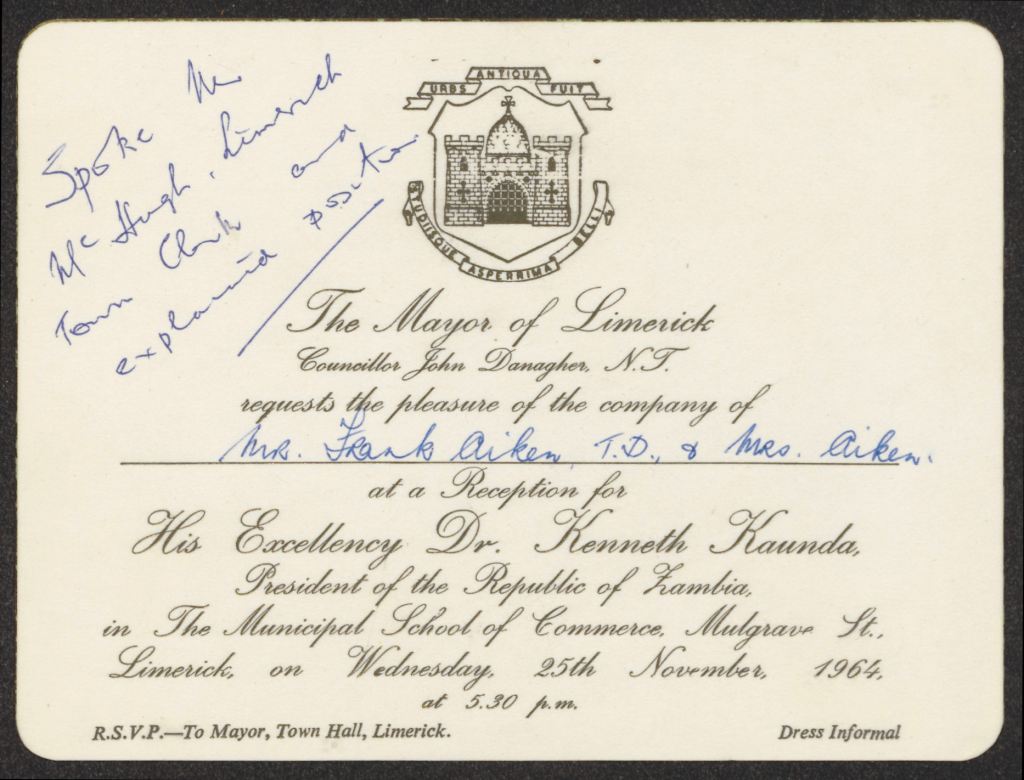 Spoke Mr
McHugh, Limerick
Town Clerk and
explained position.
URBS ANTIQUA FUIT
STUDIISQUE ASPERRIMA BELLI
The Mayor of Limerick
Councillor John Danagher, N.T.
requests the pleasure of the company of
Mr. Frank Aiken, T.D., & Mrs. Aiken.
at a Reception for
His Excellency Dr. Kenneth Kaunda,
President of the Republic of Zambia,
in The Municipal School of Commerce, Mulgrave St.,
Limerick, on Wednesday, 25th November, 1964,
at 5.30 p.m.
R.S.V.P.—To Mayor, Town Hall, Limerick.
Dress Informal